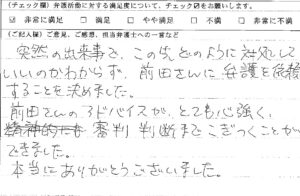 (チェック欄) 弁護活動に対する満足度について、チェックをお願いします。
☑ 非常に満足 □ 満足 □ やや満足 □ 不満 □ 非常に不満
(ご記入欄) ご意見、ご感想、担当弁護士への一言など
突然の出来事で、この先どのように対処して
いいのかわからず、前田さんに弁護を依頼
することを決めました。
前田さんのアドバイスが、とても心強く、
精神的にも 審判 判断までこぎつくことが
できました。
本当にありがとうございました。